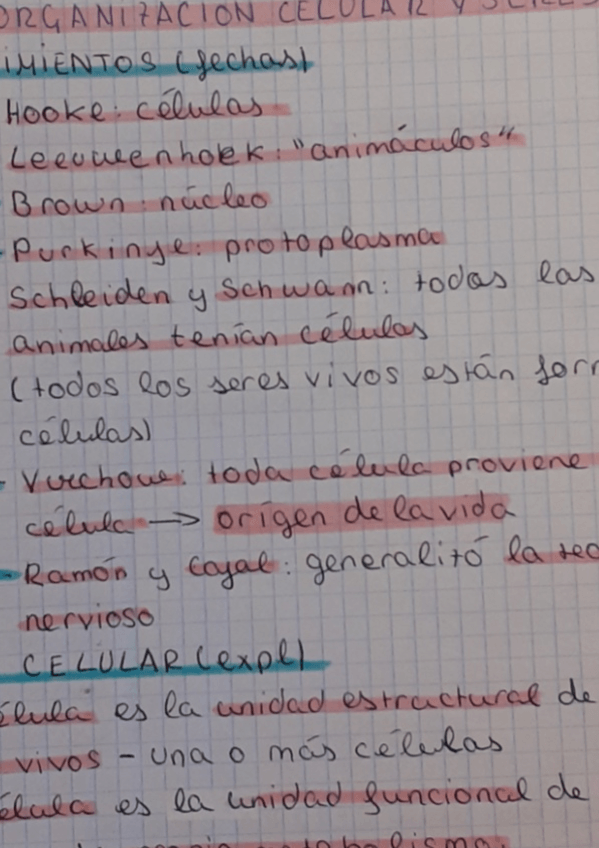 ORGANIZACION CELULAR Y
IMIENTOS (fechas)
Hooke: células
Leeuwenhoek: "animáculos"
Brown: núcleo
- Purkinje: protoplasma
Schleiden y Schwann: todas las
animales tenían células
(todos los seres vivos están for
células)
- Virchowe: toda célula proviene
célula → origen de la vida
- Ramón y Cajal: generalitó la teo
nervioso
CELULAR (expl)
élula es la unidad estructural de
vivos - una o más células
élula es la unidad funcional de